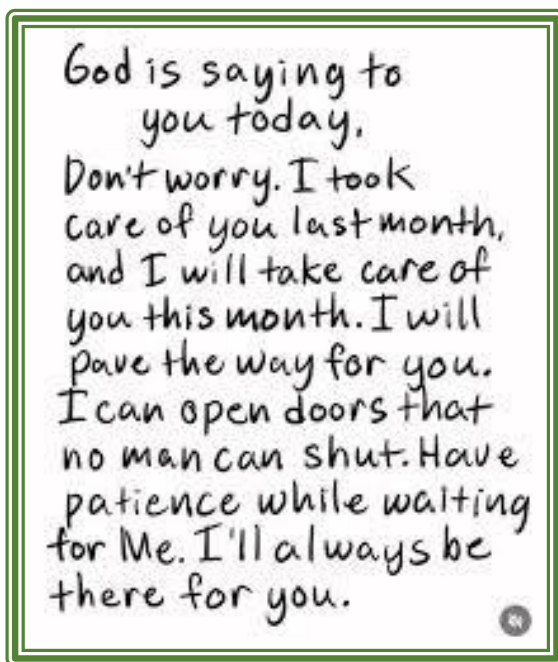 God is saying to
you today,
Don't worry. I took
care of you last month,
and I will take care of
you this month. I will
pave the way for you.
I can open doors that
no man can shut. Have
patience while waiting
for Me. I'll always be
there for you.